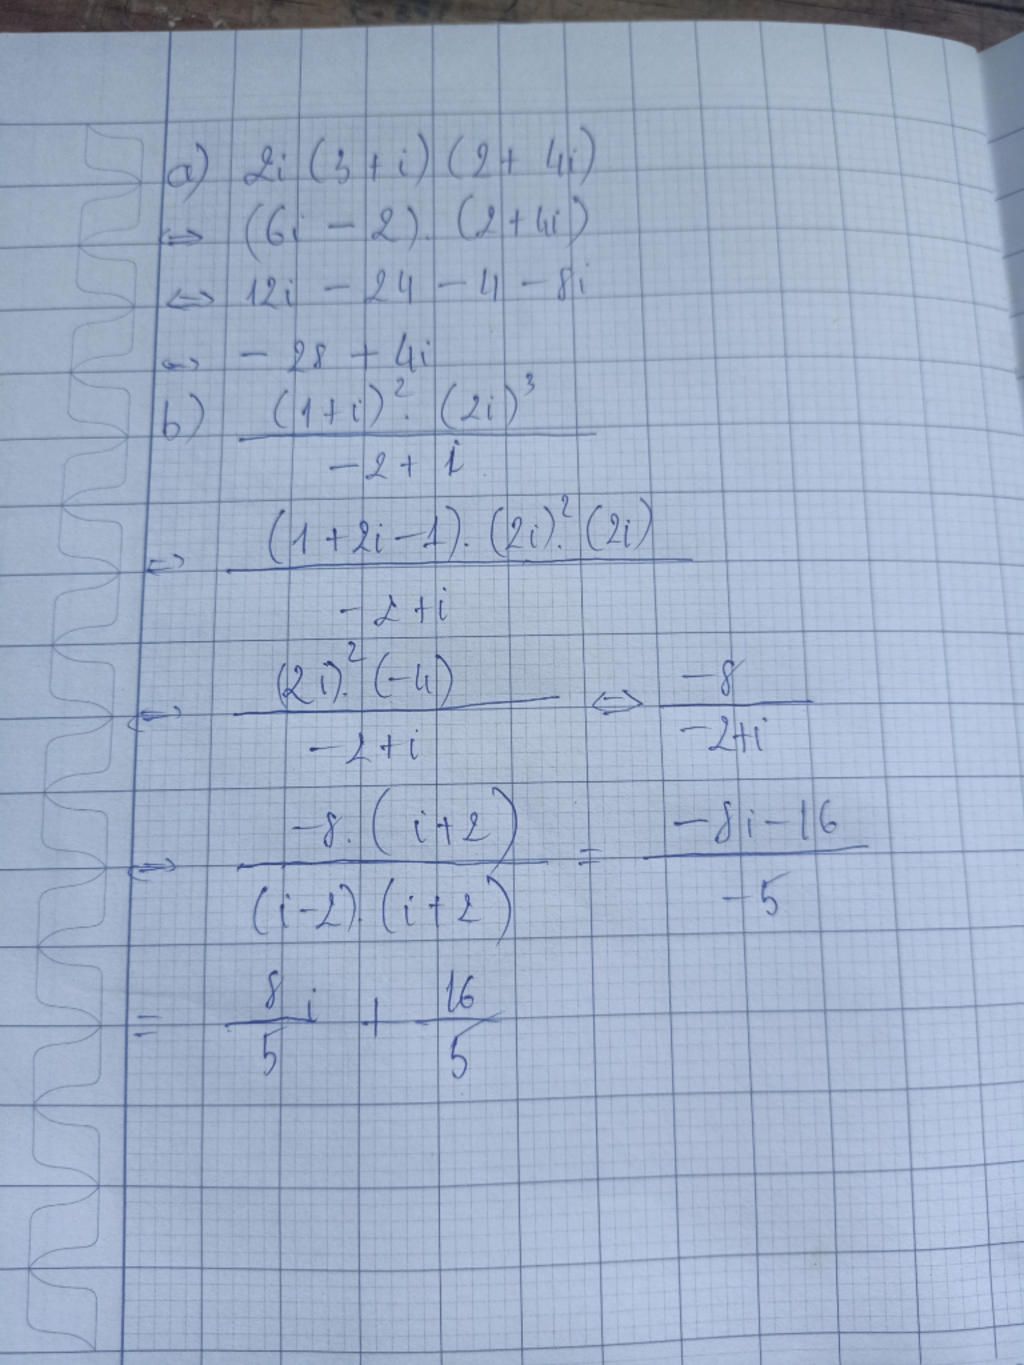 a) 2i (3 + i) (2 + 4i)
⇔ (6i - 2). (2 + 4i)
⇔ 12i - 24 - 4 - 8i
⇔ - 28 + 4i
b) (1+i)². (2i)³
-2 + i
⇔ (1 + 2i - 1). (2i)². (2i)
-2 + i
⇔ (2i)². (-4) ⇔ -8
-2 + i -2+i
⇔ -8. (i+2) = -8i - 16
(i-2). (i+2) -5
= 8 i + 16
5 5